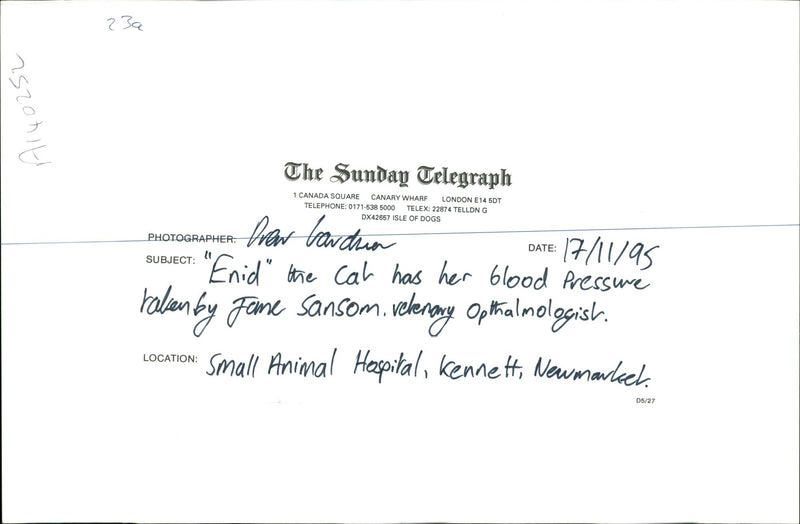 23a
A140252
The Sunday Telegraph
1 CANADA SQUARE CANARY WHARF LONDON E14 5DT
TELEPHONE: 0171-538 5000 TELEX: 22874 TELLDN G
DX42657 ISLE OF DOGS
PHOTOGRAPHER: Drew Gardner
DATE: 17/11/95
SUBJECT: "Enid" the Cat has her blood Pressure
taken by Jane Sansom. vetenary Opthalmologist.
LOCATION: Small Animal Hospital, Kennett, Newmarket.
D5/27